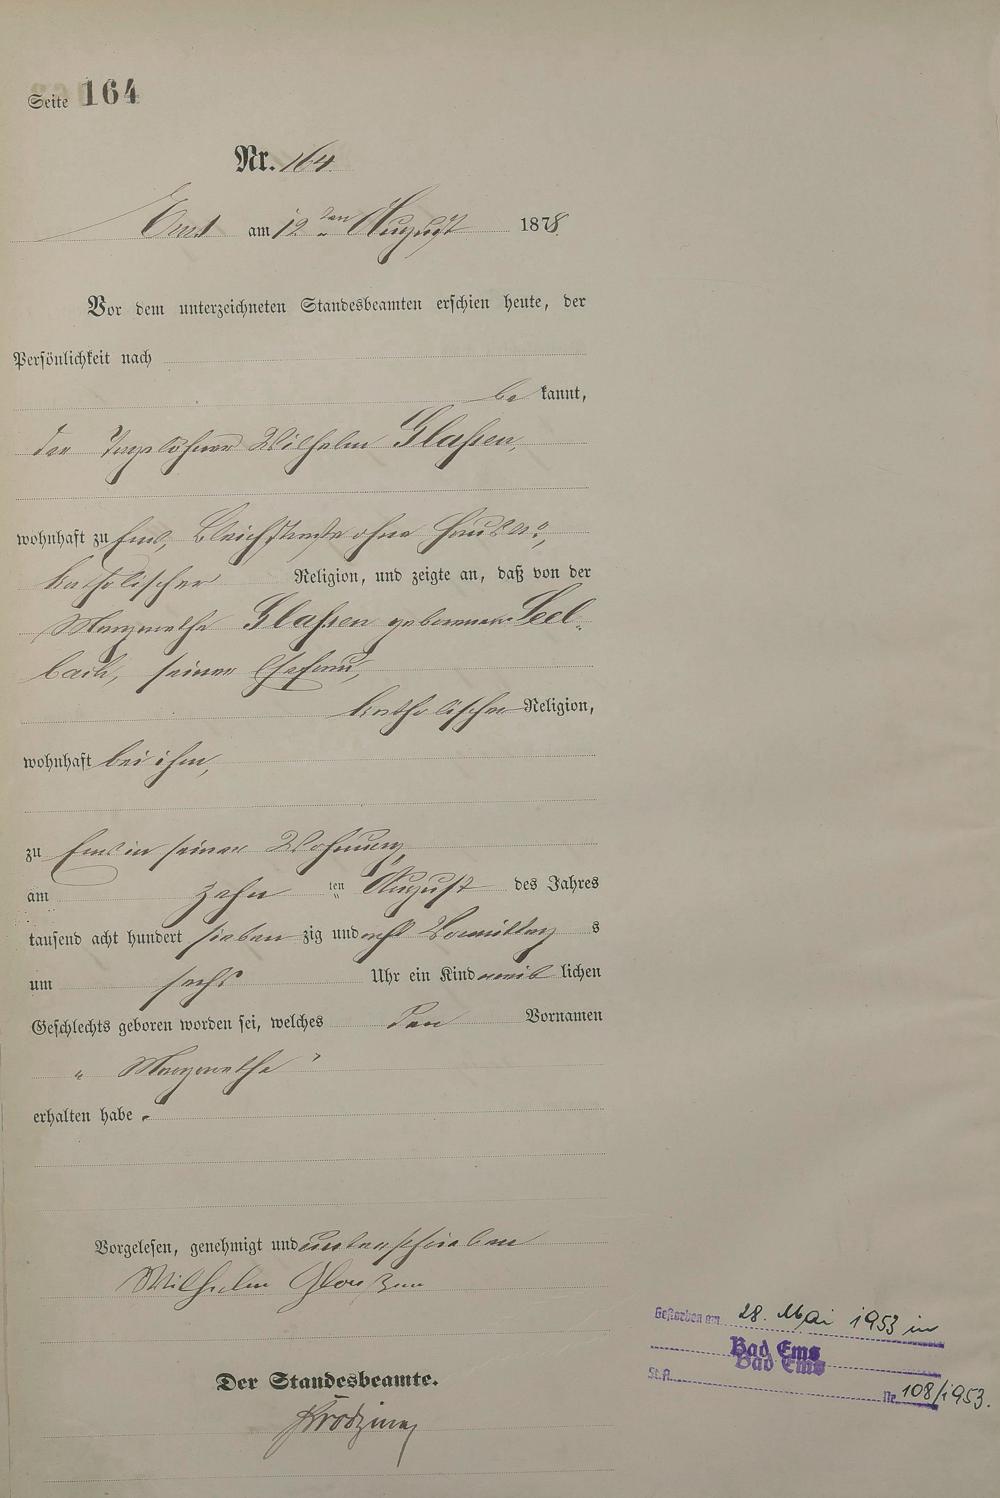 Seite 164
Nr. 164.
Ems am 12ten August 1878.
Vor dem unterzeichneten Standesbeamten erschien heute, der
Persönlichkeit nach
be kannt,
der Tagelöhner Wilhelm Glaßen,
wohnhaft zu Ems, Bleichstraße ohne Haus No,
katholischer Religion, und zeigte an, daß von der
Margarethe Glaßen geborenen Seel-
bach, seiner Ehefrau,
katholischer Religion,
wohnhaft bei ihm,
zu Ems in seiner Wohnung,
am zehn ten August des Jahres
tausend acht hundert sieben zig und acht Vormittag s
um sechs Uhr ein Kind weib lichen
Geschlechts geboren worden sei, welches den Vornamen
„ Margarethe "
erhalten habe.
Vorgelesen, genehmigt und unterschrieben
Wilhelm Glaßen
Der Standesbeamte.
Gestorben am 28. Mai 1953 in
Bad Ems
Bad Ems
St.A. Nr. 108/1953.